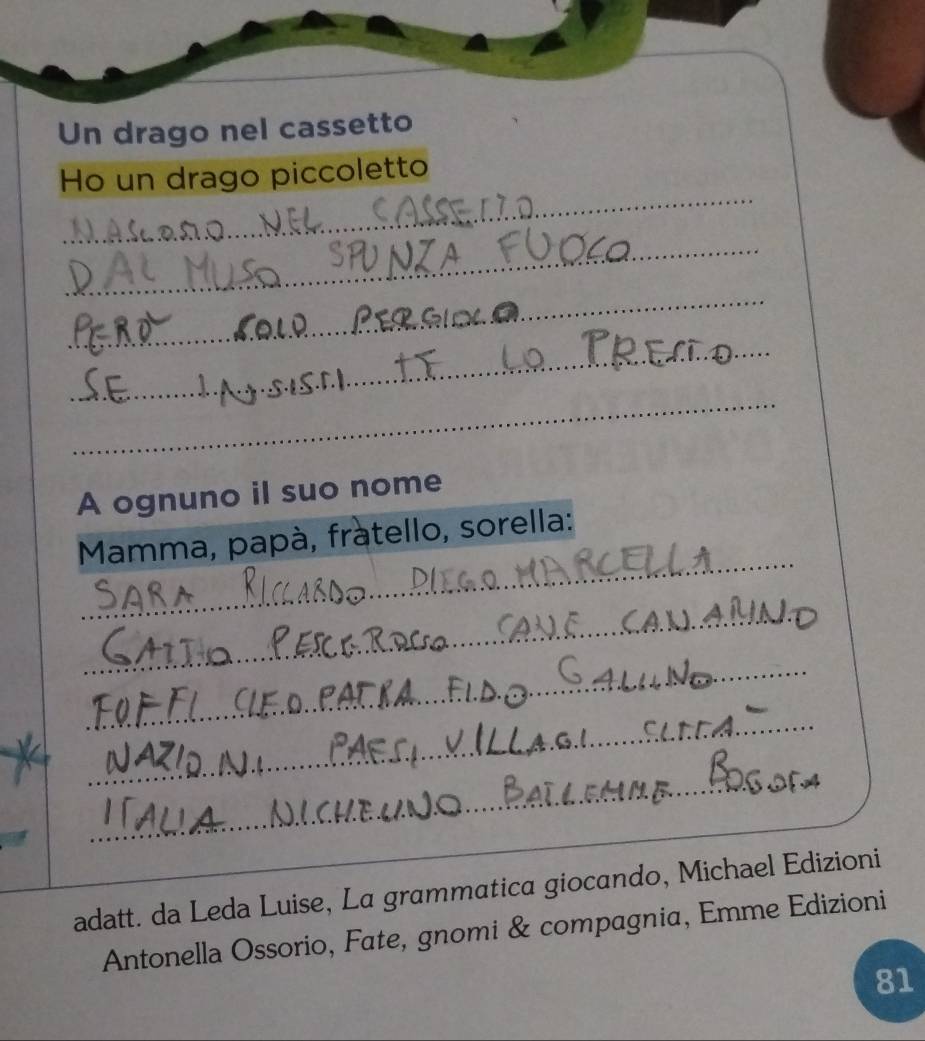 Un drago nel cassetto
Ho un drago piccoletto
NASCOSTO NEL CASSETTO
DAL MUSO SPUNZA FUOCO
PERÒ SOLO PERGIOCO
SE INSISTI TE LO PRESTO
A ognuno il suo nome
Mamma, papà, fratello, sorella:
SARA RICCARDO DIEGO MARCELLA
GATTO PESCEROSSO CANE CANARINO
FOFFI CLEOPATRA FIDO GALUNO
NAZIONI PAESI VILLAGI CITTÀ
ITALIA NICHELINO BATLEMME BOGOTA
adatt. da Leda Luise, La grammatica giocando, Michael Edizioni
Antonella Ossorio, Fate, gnomi & compagnia, Emme Edizioni
81